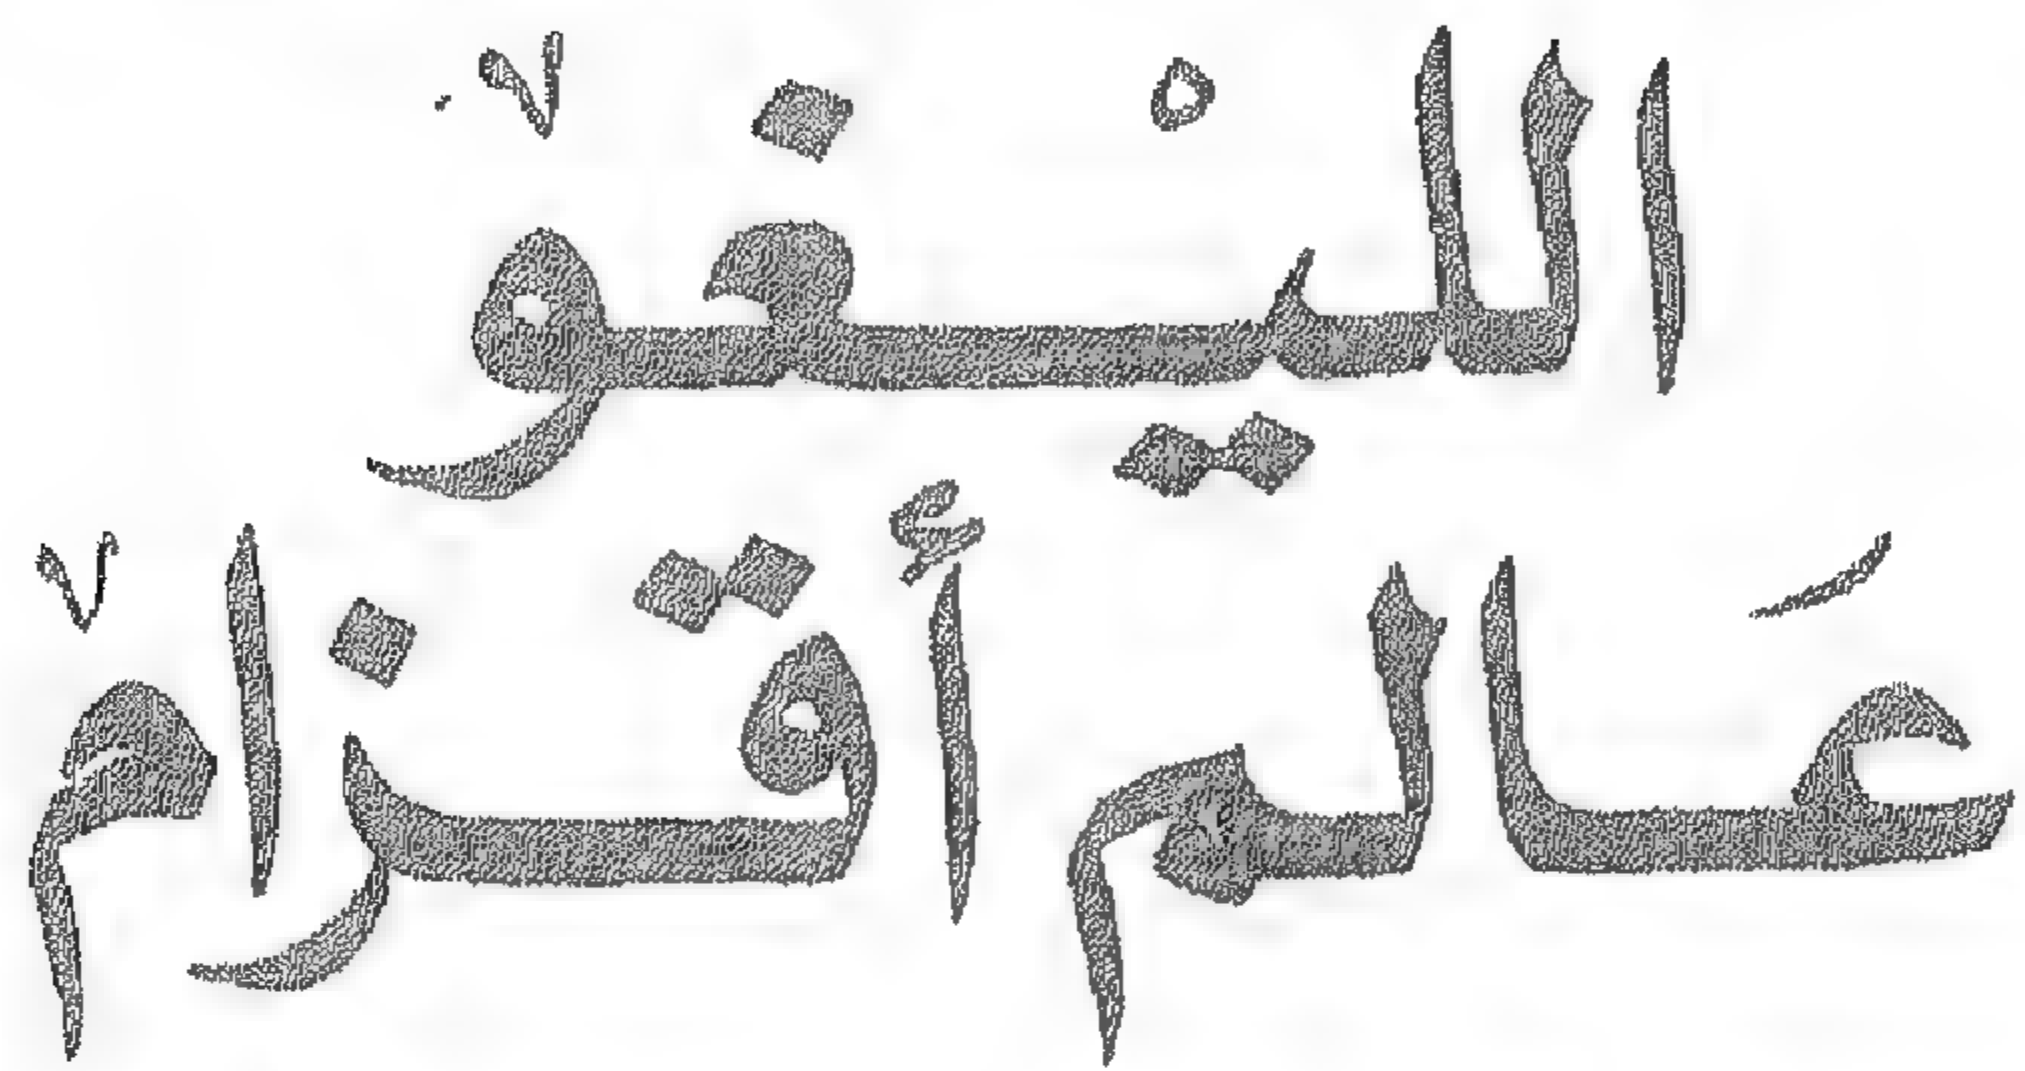 الليْغو
عَالم أقزام